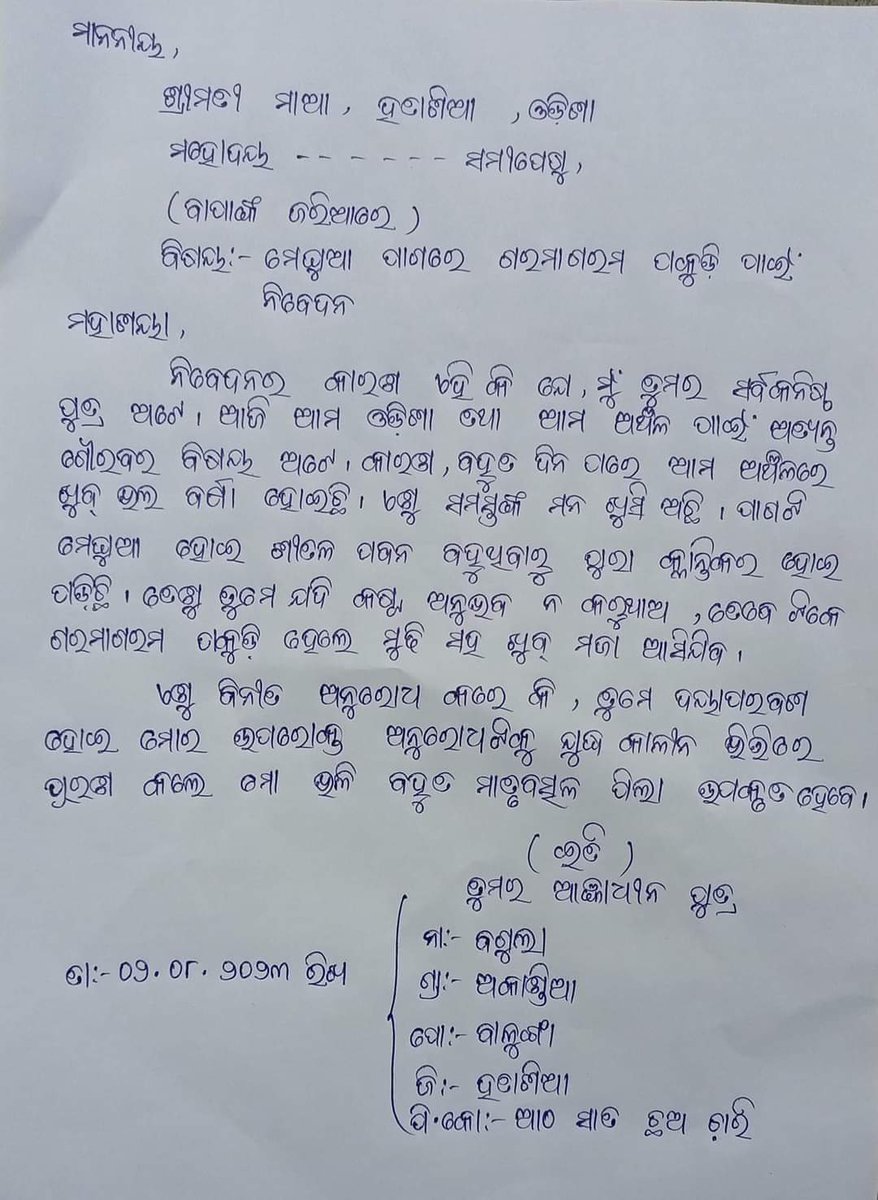 ମାନନୀୟ,
ଶ୍ରୀମତୀ ମାଆ, ହଟାଶିଆ, ଓଡ଼ିଶା
ମହୋଦୟ - - - - - - - ସମୀପେଷୁ,
(ବାପାଙ୍କ ଜରିଆରେ)
ବିଷୟ:- ମେଘୁଆ ପାଗରେ ଗରମାଗରମ ପକୁଡ଼ି ପାଇଁ
ନିବେଦନ
ମହାଶୟା,
ନିବେଦନର କାରଣ ଏହି କି ଯେ, ମୁଁ ତୁମର ସର୍ବକନିଷ୍ଠ
ପୁତ୍ର ଅଟେ। ଆଜି ଆମ ଓଡ଼ିଶା ତଥା ଆମ ଅଞ୍ଚଳ ପାଇଁ ଅତ୍ୟନ୍ତ
ଗୌରବର ବିଷୟ ଅଟେ। କାରଣ, ବହୁତ ଦିନ ପରେ ଆମ ଅଞ୍ଚଳରେ
ଖୁବ୍ ଭଲ ବର୍ଷା ହୋଇଛି। ଏଣୁ ସମସ୍ତଙ୍କ ମନ ଖୁସି ଅଛି। ପାଗଟି
ମେଘୁଆ ହୋଇ ଶୀତଳ ପବନ ବହୁଥିବାରୁ ପୁରା କ୍ଲାନ୍ତିକର ହୋଇ
ପଡ଼ିଛି। ତେଣୁ ତୁମେ ଯଦି କଷ୍ଟ ଅନୁଭବ ନ କରୁଥାଅ, ତେବେ ଟିକେ
ଗରମାଗରମ ପକୁଡ଼ି ହେଲେ ମୁଢି ସହ ଖୁବ୍ ମଜା ଆସିଯିବ।
ଏଣୁ ବିନୀତ ଅନୁରୋଧ କରେ କି, ତୁମେ ଦୟାପରବଶ
ହୋଇ ମୋର ଉପରୋକ୍ତ ଅନୁରୋଧଟିକୁ ଯୁଦ୍ଧ କାଳୀନ ଭିତ୍ତିରେ
ପୂରଣ କଲେ ମୋ ଭଳି ବହୁତ ମାତୃବତ୍ସଳ ପିଲା ଉପକୃତ ହେବେ।
(ଇତି)
ତୁମର ଆଜ୍ଞାଧୀନ ପୁତ୍ର
ନା:- ବଗୁଲା
ତା:- ୦୨.୦୮.୨୦୨୩ ରିଖ
ଗ୍ରା:- ଅକାଣ୍ଡିଆ
ପୋ:- ବାଳୁଙ୍ଗା
ଜି:- ହଟାଶିଆ
ପି.କୋ:- ଆଠ ସାତ ଛଅ ଚାରି